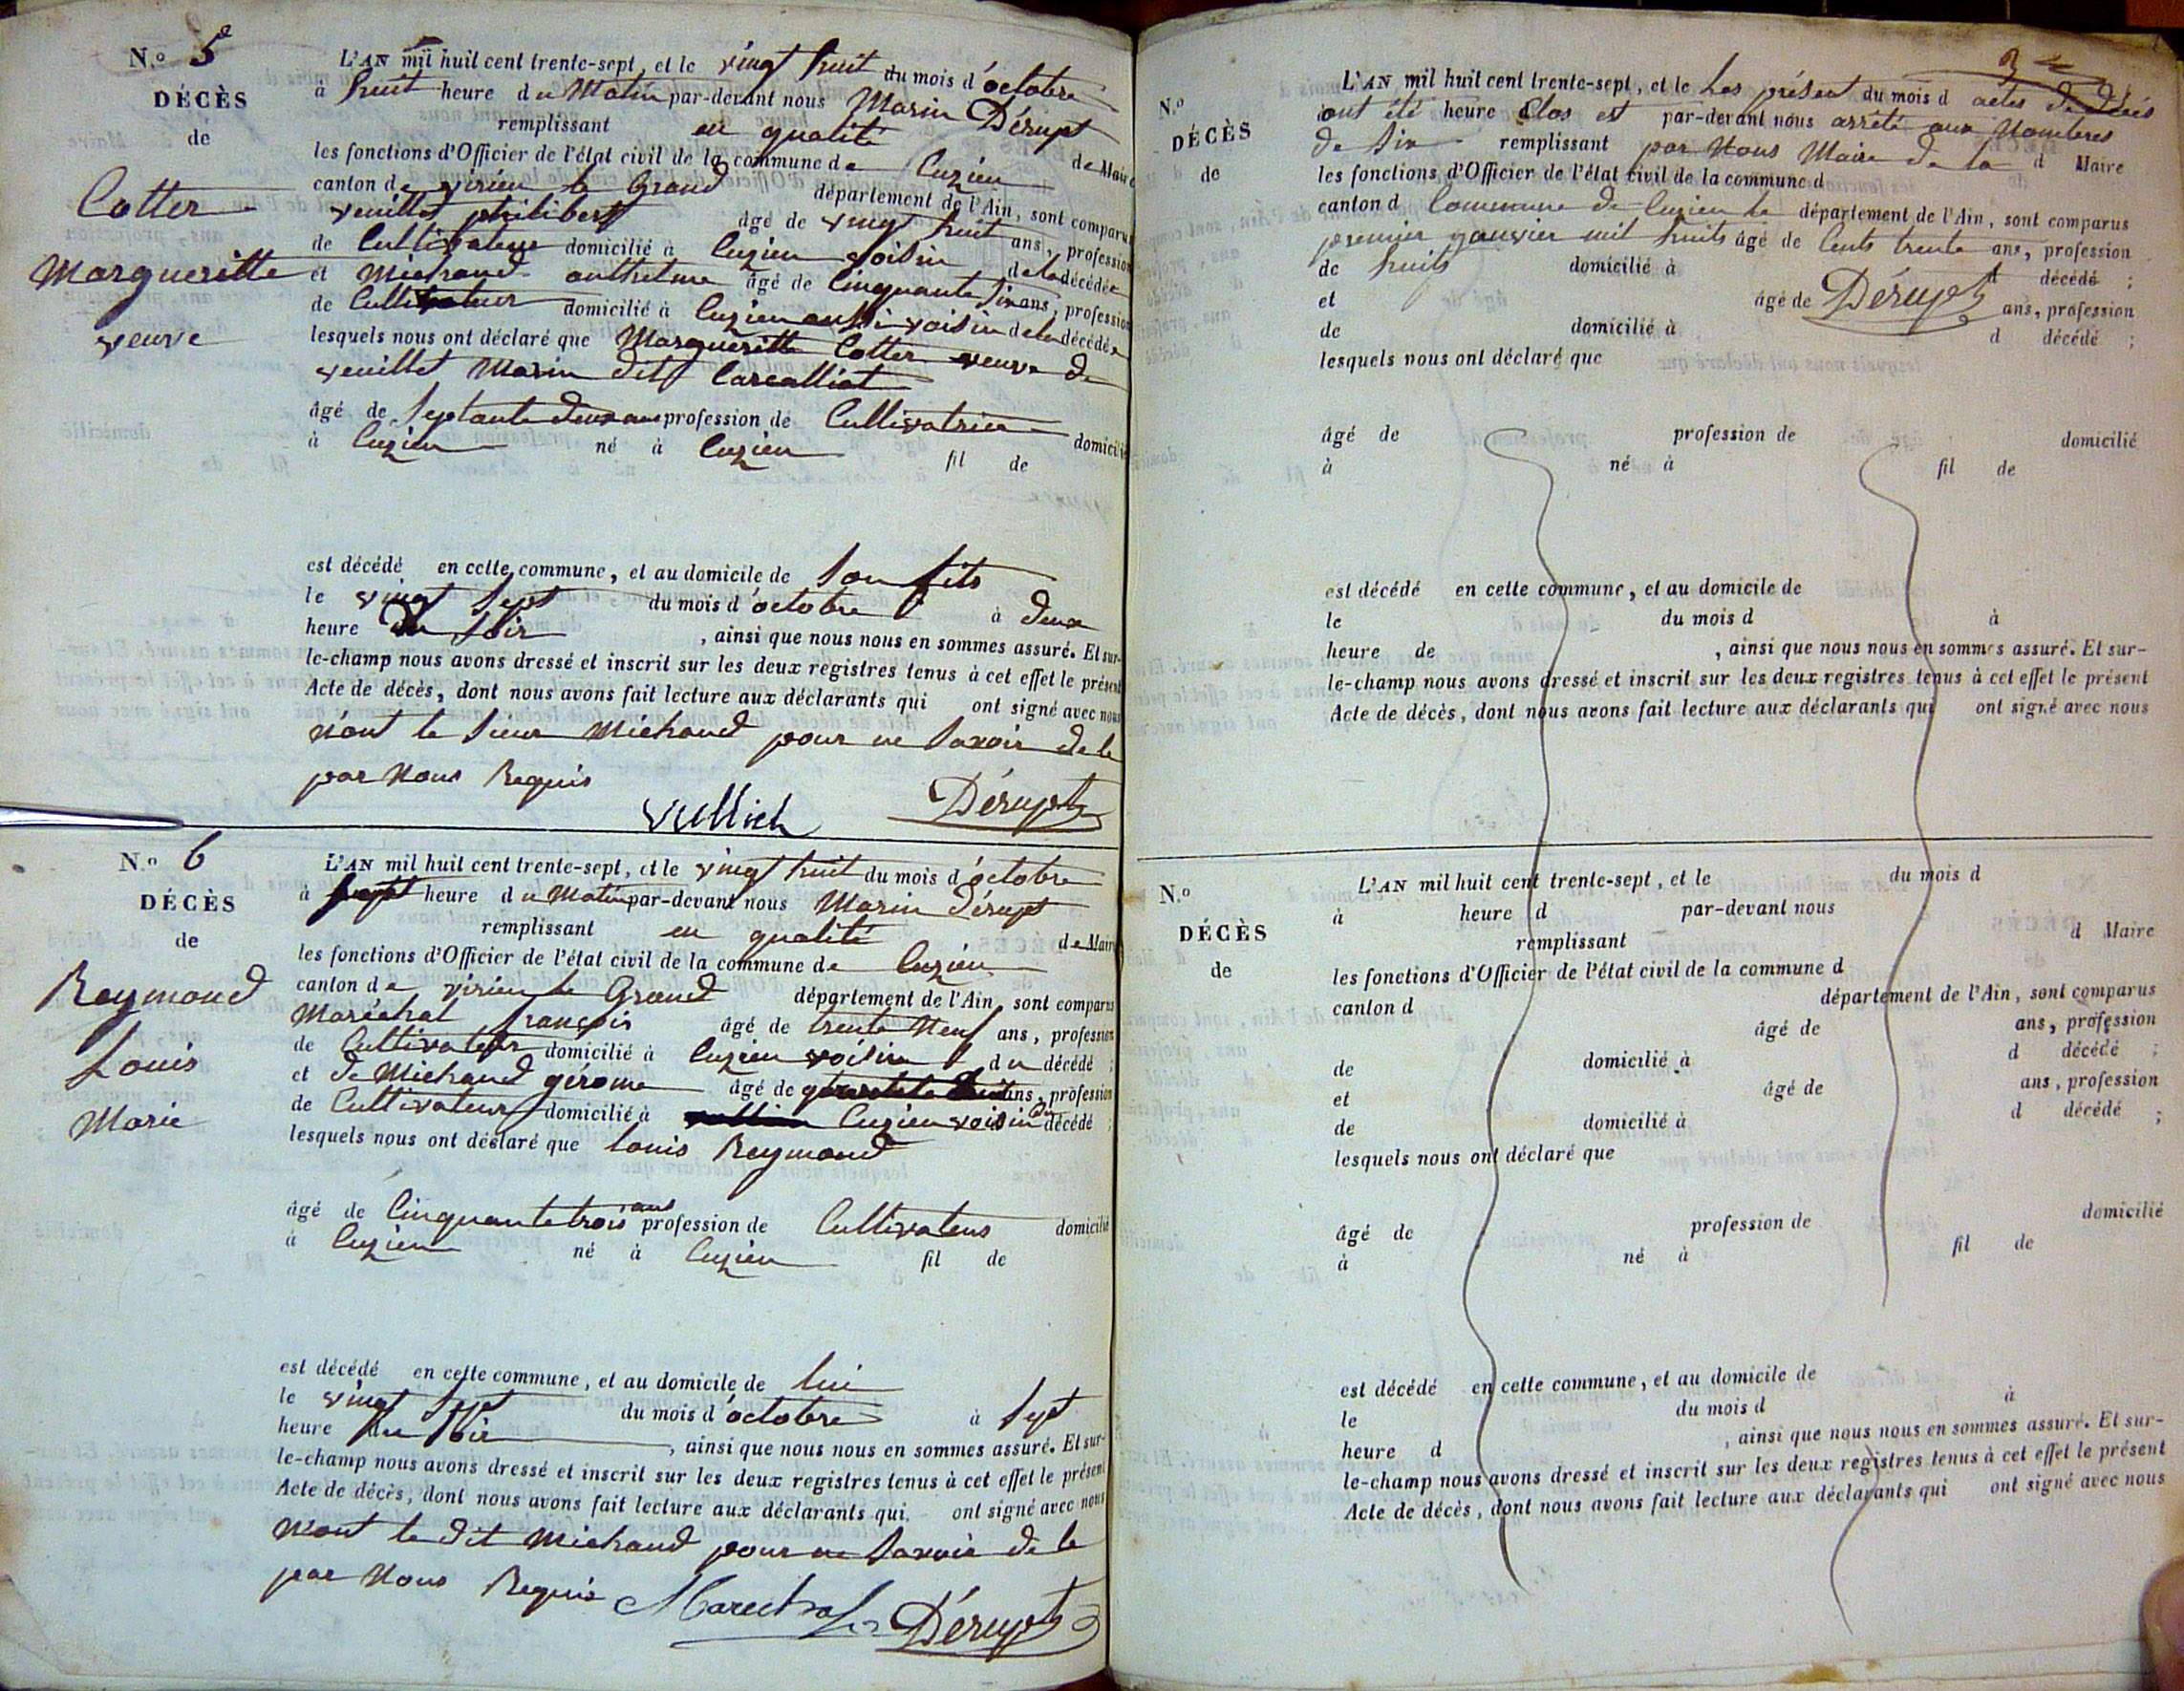 N.o 5e
DÉCÈS
de
Cotter
Margueritte
veuve
L'AN mil huit cent trente-sept, et le vingt huit du mois d'octobre
à huit heure du Matin par-devant nous Marin Dérupt
remplissant en qualité de Maire
les fonctions d'Officier de l'état civil de la commune de Cuzieu
canton de virieu le Grand département de l'Ain, sont comparus
veuillet philibert âgé de vingt huit ans, profession
de Cultivateur domicilié à Cuzieu voisin de la décédée
et Michaud anthelme âgé de Cinquante six ans, profession
de Cultivateur domicilié à Cuzieu aussi voisin de la décédée
lesquels nous ont déclaré que Margueritte Cotter veuve de
veuillet Marin dit Carcalliat
âgé de septante deux ans profession de Cultivatrice domicilié
à Cuzieu né à Cuzieu fil de
est décédé en cette commune, et au domicile de son fils
le vingt sept du mois d'octobre à deux
heure du soir, ainsi que nous nous en sommes assuré. Et sur-
le-champ nous avons dressé et inscrit sur les deux registres tenus à cet effet le présent
Acte de décès, dont nous avons fait lecture aux déclarants qui ont signé avec nous
Nont le sieur Michaud pour ne savoir de le
par Nous Requis
Dérupt
N.o 6
DÉCÈS
de
Reymond
Louis
Marié
L'AN mil huit cent trente-sept, et le vingt huit du mois d'octobre
à heure du Matin par-devant nous Marin dérupt
remplissant en qualité de Maire
les fonctions d'Officier de l'état civil de la commune de Cuzieu
canton de virieu le Grand département de l'Ain, sont comparus
Maréchal françois âgé de trente Neuf ans, profession
de Cultivateur domicilié à Cuzieu voisin du décédé ;
et de Michaud gérome âgé de ans, profession
de Cultivateur domicilié à Cuzieu voisin du décédé ;
lesquels nous ont déclaré que Louis Reymond
âgé de Cinquante trois ans profession de Cultivateur domicilié
à Cuzieu né à Cuzieu fil de
est décédé en cette commune, et au domicile de lui
le vingt sept du mois d'octobre à sept
heure du soir, ainsi que nous nous en sommes assuré. Et sur-
le-champ nous avons dressé et inscrit sur les deux registres tenus à cet effet le présent
Acte de décès, dont nous avons fait lecture aux déclarants qui ont signé avec nous
Nont le dit Michaud pour ne savoir de le
par Nous Requis Marechal Dérupt
N.o
DÉCÈS
de
L'AN mil huit cent trente-sept, et le Les présent du mois d actes de décès
ont été heure Clos et par-devant nous arrêté aux Nombres
de six remplissant par Nous Maire de la d Maire
les fonctions d'Officier de l'état civil de la commune d
canton d Commune de Cuzieu le département de l'Ain, sont comparus
premier janvier mil huits âgé de Cents trente ans, profession
de huits domicilié à d décédé ;
et âgé de Dérupt ans, profession
de domicilié à d décédé ;
lesquels nous ont déclaré que
âgé de profession de domicilié
à né à fil de
est décédé en cette commune, et au domicile de
le du mois d à
heure de , ainsi que nous nous en sommes assuré. Et sur-
le-champ nous avons dressé et inscrit sur les deux registres tenus à cet effet le présent
Acte de décès, dont nous avons fait lecture aux déclarants qui ont signé avec nous
N.o
DÉCÈS
de
L'AN mil huit cent trente-sept, et le du mois d
à heure d par-devant nous
remplissant d Maire
les fonctions d'Officier de l'état civil de la commune d
canton d département de l'Ain, sont comparus
âgé de ans, profession
de domicilié à d décédé ;
et âgé de ans, profession
de domicilié à d décédé ;
lesquels nous ont déclaré que
âgé de profession de domicilié
à né à fil de
est décédé en cette commune, et au domicile de
le du mois d à
heure d , ainsi que nous nous en sommes assuré. Et sur-
le-champ nous avons dressé et inscrit sur les deux registres tenus à cet effet le présent
Acte de décès, dont nous avons fait lecture aux déclarants qui ont signé avec nous